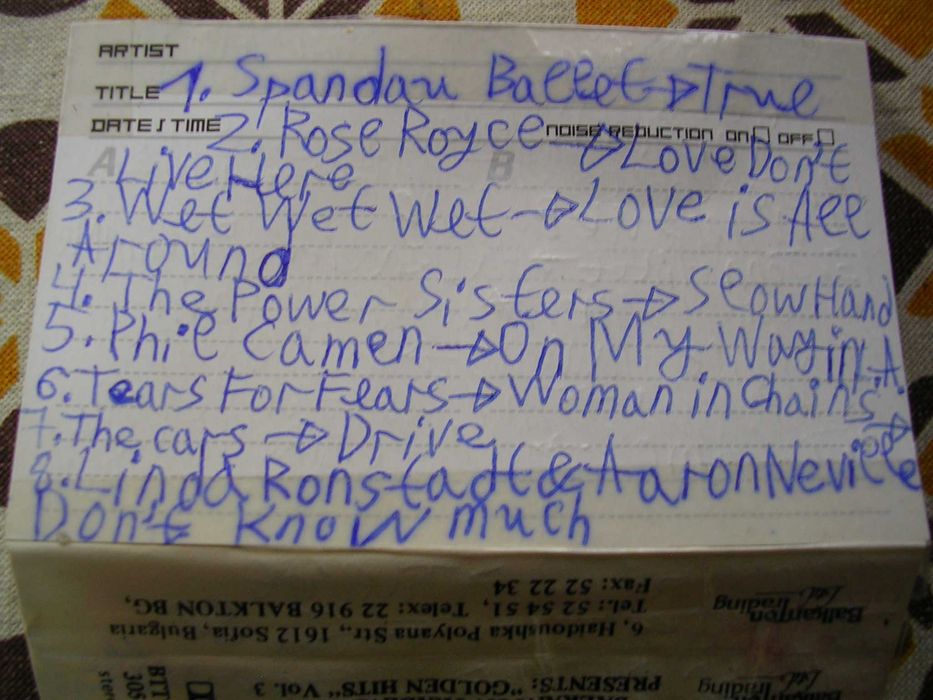 ARTIST
TITLE 1. Spandau Ballet → True
DATE / TIME 2. Rose Royce NOISE REDUCTION ON □ OFF □ → Love Don't
A B
Live Here
3. Wet Wet Wet → Love is All
Around
4. The Power Sisters → Slow Hand
5. Phil Camen → On My Way in A
6. Tears For Fears → Woman in Chains
7. The cars → Drive
8. Linda Ronstadt & Aaron Neville →
Don't Know much
6, Haidoushka Polyana Str., 1612 Sofia, Bulgaria
Tel.: 52 54 51, Telex: 22 916 BALKTON BG,
Fax: 52 22 34
Balkanton
Trading Ltd.
PRESENTS: "GOLDEN HITS" Vol. 3